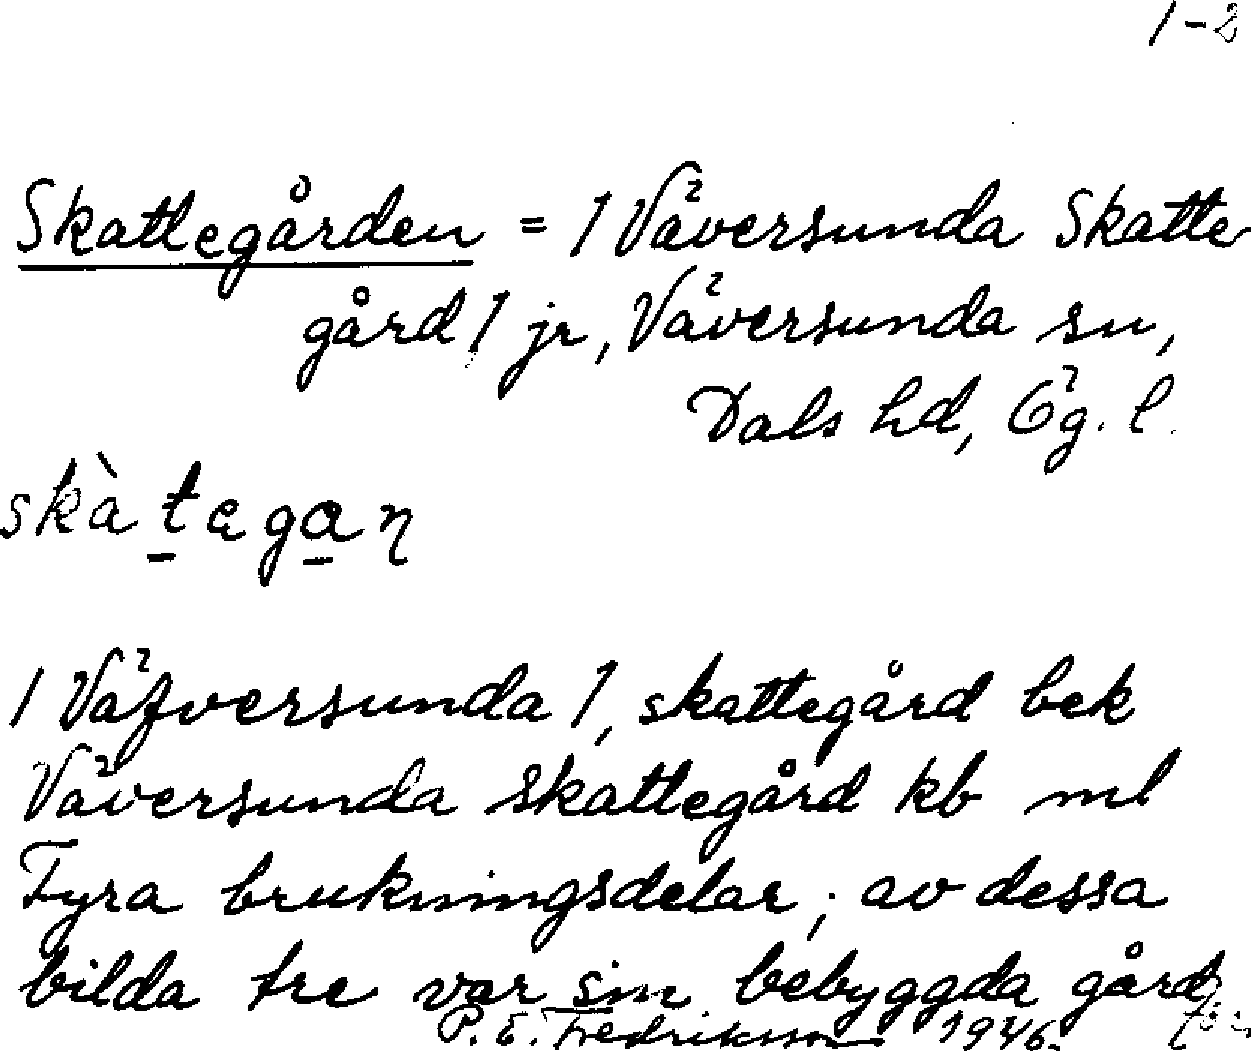 1-2
Skattegården = / Väversunda Skatte
gård / jr, Väversunda sn,
Dals hd, Ög. l.
skàtegaɳ
/ Väfversunda /, skattegård bek
Väversunda Skattegård kb ml
Fyra brukningsdelar; av dessa
bilda tre var sin bebyggda gård
P. E. Fredriksson 1946.